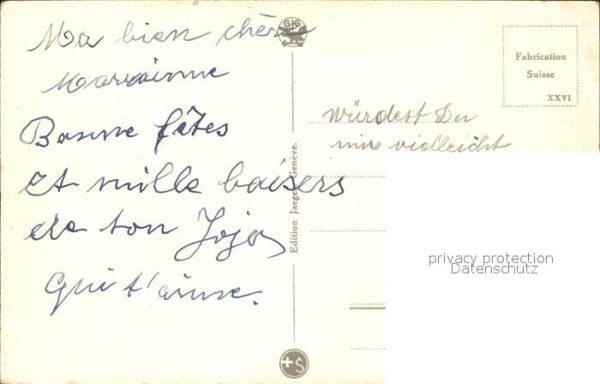 Ma bien chère
Marrainne
Bonne fêtes
Et mille baisers
de ton Jojo
Qui t'aime.
GJG
Edition Jaeger, Genève.
Fabrication
Suisse
XXVI
würdest Du
mir vielleicht
privacy protection
Datenschutz
+S